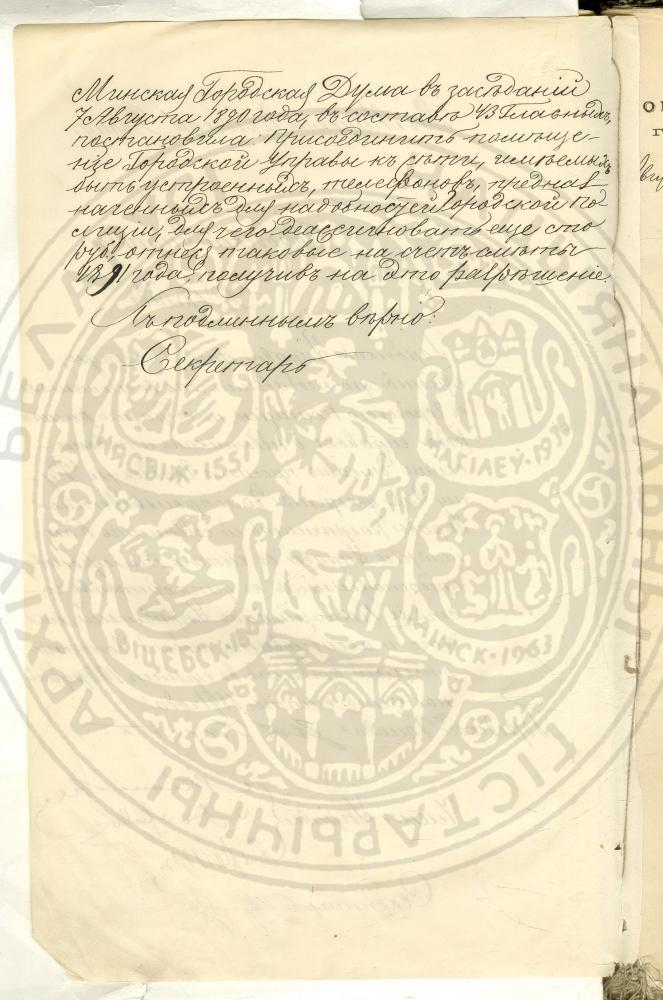 Минская Городская Дума въ засѣданіи
7 Августа 1890 года, въ составѣ 43 Гласныхъ,
постановила: Присоединить помѣще-
ніе Городской Управы къ сѣти, имѣемыхъ
быть устроенными, телефоновъ, предназ-
наченныхъ для надобностей Городской По
лиціи, для чего деассигновать еще сто
руб., отнеся таковые на счетъ смѣты
1891 года, получивъ на это разрѣшеніе.
Съ подлиннымъ вѣрно:
Секретарь
НЯСВІЖ·1551
МАГІЛЕЎ·19
ВІЦЕБСК·18
МІНСК·1963
ГІСТАРЫЧНЫ
АРХІЎ БЕЛАР